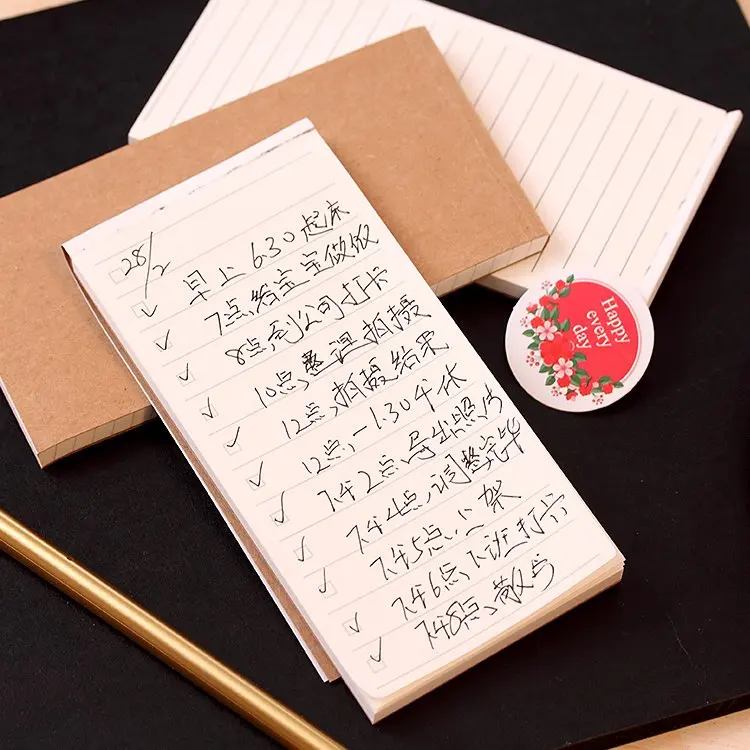 28/2
早上6.30起床
7点给宝宝做饭
8点到公司打卡
10点,整理拍摄
12点,拍摄结果
12点,-1:30午休
下午2点,导出照片
下午4点,调整完毕
下午5点,上架
下午6点,下班打卡
下午8点,散步
Happy
every
day